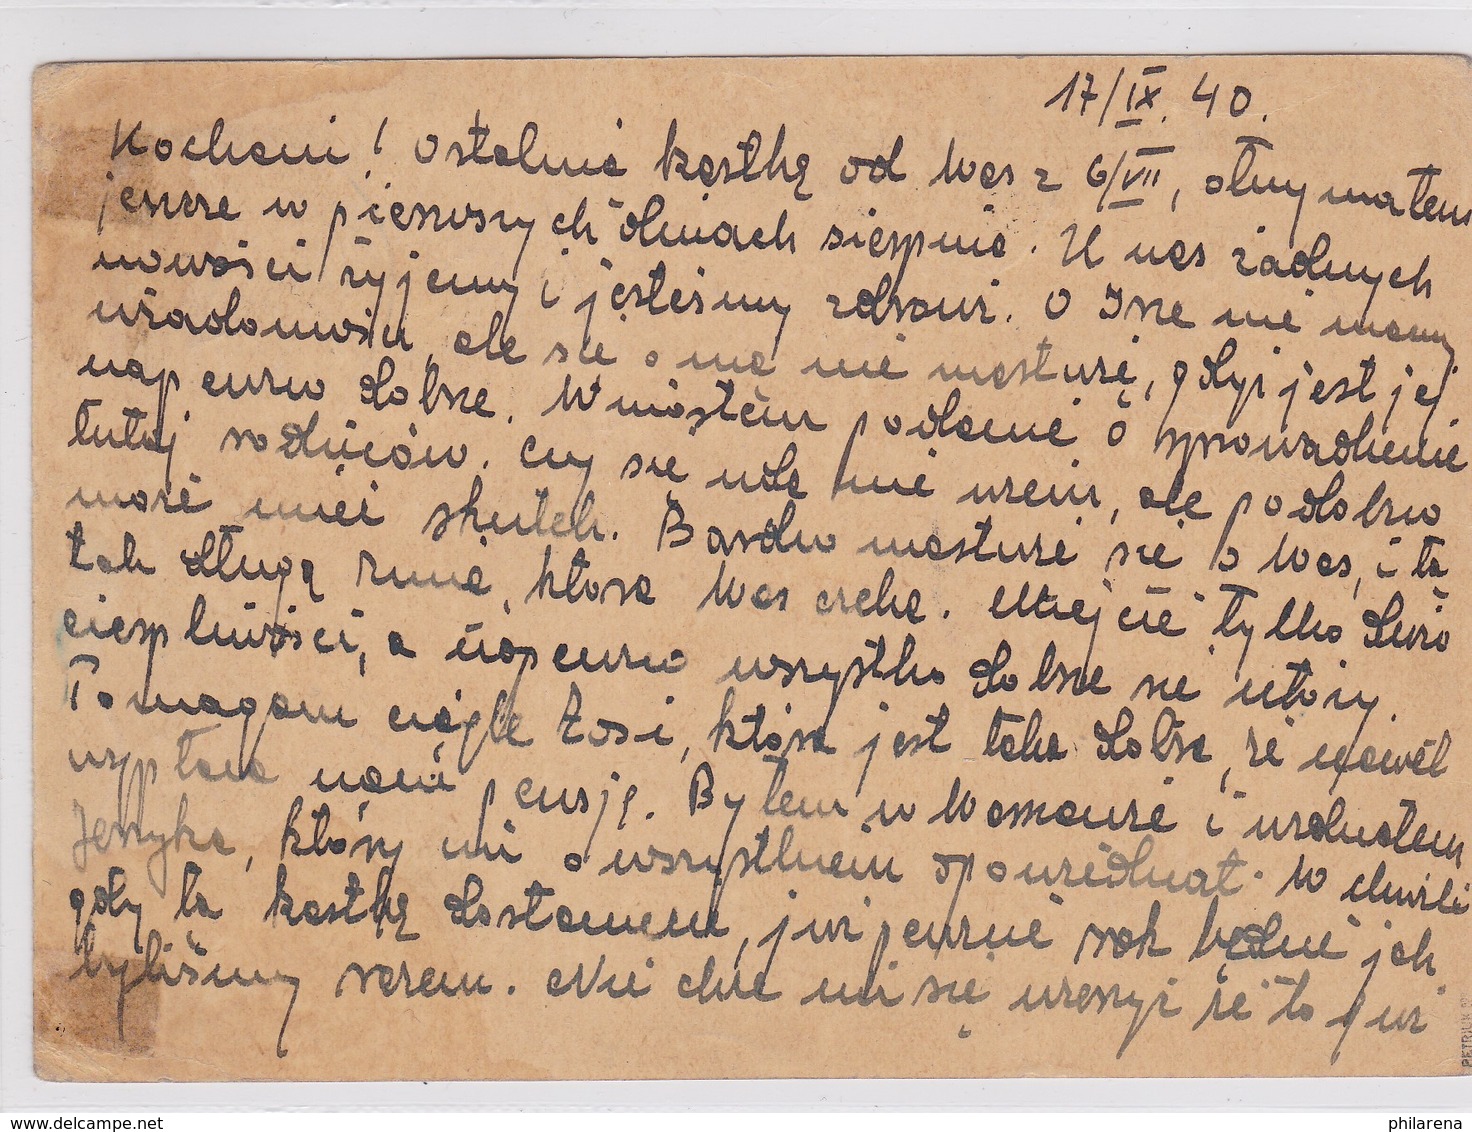 17/IX. 40.
Kochani! Ostatnią kartkę od Was z 6/VII, otrzymałem
jeszcze w pierwszych dniach sierpnia. U nas żadnych
nowości żyjemy i jesteśmy zdrowi. O Irce nie mamy
wiadomości, ale się o nią nie martwię, gdyż jest jej
napewno dobrze. Wniosłem podanie o sprowadzenie
tutaj rodziców. Czy się uda nie wiem, ale podobno
może mieć skutek. Bardzo martwię się o Was, i tą
tak długą zimą, która Was czeka. Miejcie tylko dużo
cierpliwości, a napewno wszystko dobrze się ułoży.
Pomagam ciągle Zosi, która jest taka dobra, że nawet
wypłaca nam pensję. Byłem w Warszawie i widziałem
Jerzyka, który mi o wszystkiem opowiedział. W chwili
gdy tą kartkę dostaniecie, już pewnie rok będzie jak
byliśmy razem. Nie chce mi się wierzyć że to już
PETRIUK
philarena